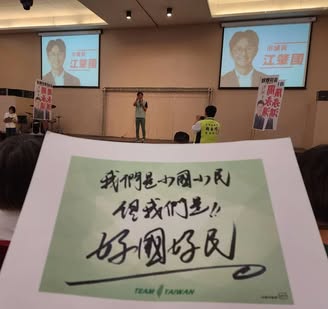 市議員
江肇國
市議員
江肇國
我們是小國小民
但我們是!!
好國好民
TEAM TAIWAN